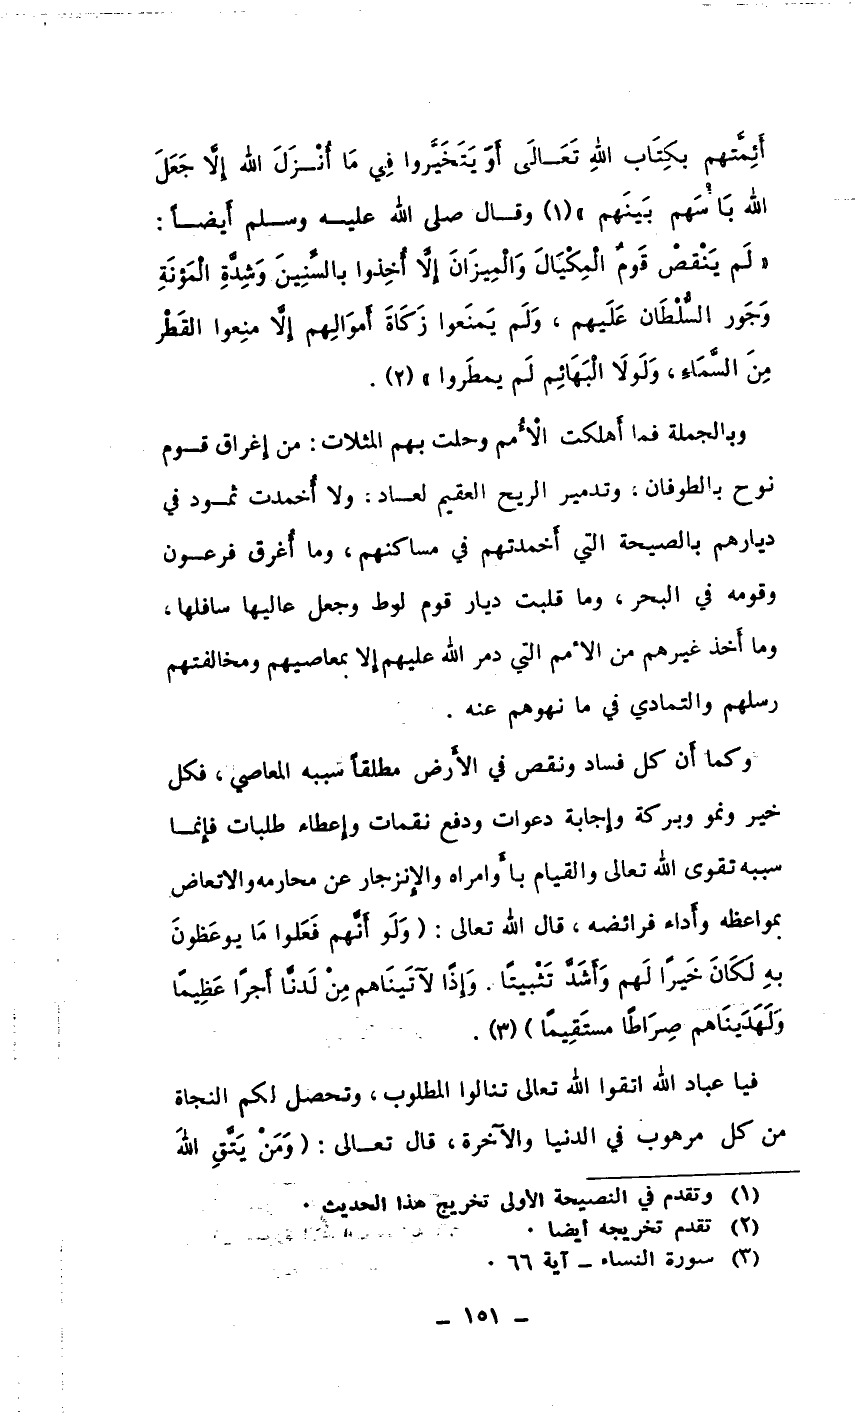 أَئِمَّتهم بكِتَاب اللهِ تَعَـالَى أَوْ يَتَخَيَّروا فِي مَا أُنْـزَلَ الله إِلَّا جَعَلَ
الله بَأْسَهم بَينَهم » (١) وقـال صلى الله عليـه وسـلم أَيضـاً :
« لَم يَنْقصْ قَومٌ الْمِكْيَالَ وَالْمِيزَانَ إِلَّا أُخِذوا بالسِّنِينَ وَشِدَّةِ الْمَؤنَةِ
وَجَور السُّلْطَان عَلَيهم ، وَلَم يَمنَعوا زَكَاةَ أَموَالِهم إِلَّا منِعوا القَطْر
مِنَ السَّمَاءِ ، وَلَولَا الْبَهَائِم لَم يمطَروا » (٢) .
وبالجملة فما أَهلكت الْأُمم وحلت بهم المثلات : من إغراق قـوم
نوح بالطوفان ، وتدمير الريح العقيم لعـاد : ولا أُخمدت ثمـود في
ديارهم بالصيحة التي أَخمدتهم في مساكنهم ، وما أُغرق فرعـون
وقومه في البحر ، وما قلبت ديار قوم لوط وجعل عاليها سافلها ،
وما أَخذ غيرهم من الأُمم التي دمر الله عليهم إلا بمعاصيهم ومخالفتهم
رسلهم والتمادي في ما نهوهم عنه .
وكما أَن كل فساد ونقص في الأَرض مطلقاً سببه المعاصي ، فكل
خير ونمو وبركة وإجابة دعوات ودفع نقمات وإعطاء طلبات فإنمـا
سببه تقوى الله تعالى والقيام بأَوامراه والإنزجار عن محارمه والاتعاض
بمواعظه وأَداء فرائضه ، قال الله تعالى : ( وَلَو أَنَّهم فَعَلوا مَا يوعَظونَ
بهِ لَكَانَ خَيرًا لَهم وَأَشَدَّ تَثْبيتًا . وَإِذًا لآتَينَاهم مِنْ لَدنَّا أَجرًا عَظِيمًا
وَلَهَدَينَاهم صِرَاطًا مستَقِيمًا ) (٣) .
فيا عباد الله اتقوا الله تعالى تنالوا المطلوب ، وتحصل لكم النجاة
من كل مرهوب في الدنيا والآخرة ، قال تعـالى : ( وَمَنْ يَتَّقِ اللهَ
(١) وتقدم في النصيحة الأولى تخريج هذا الحديث .
(٢) تقدم تخريجه أيضا .
(٣) سورة النساء ــ آية ٦٦ .
ــ ١٥١ ــ